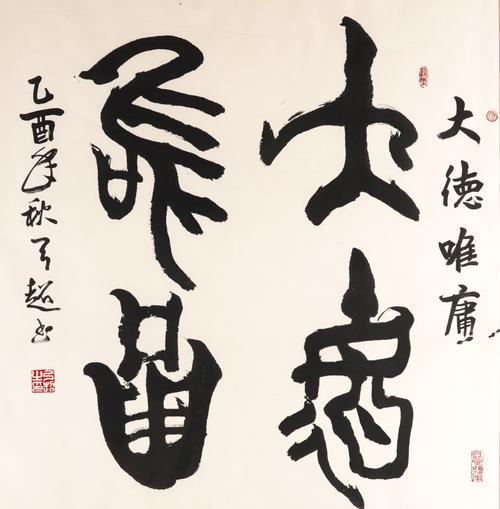 大德唯庸
大德
唯庸
乙酉年秋弓超书